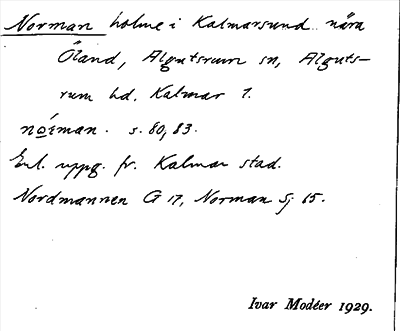 Norman holme i Kalmarsund nära
Öland, Algutsrum sn, Alguts-
rum hd. Kalmar l.
nórman. s. 80, 83.
Enl. uppg. fr. Kalmar stad.
Nordmannen G 17, Norman Sj 65.
Ivar Modéer 1929.